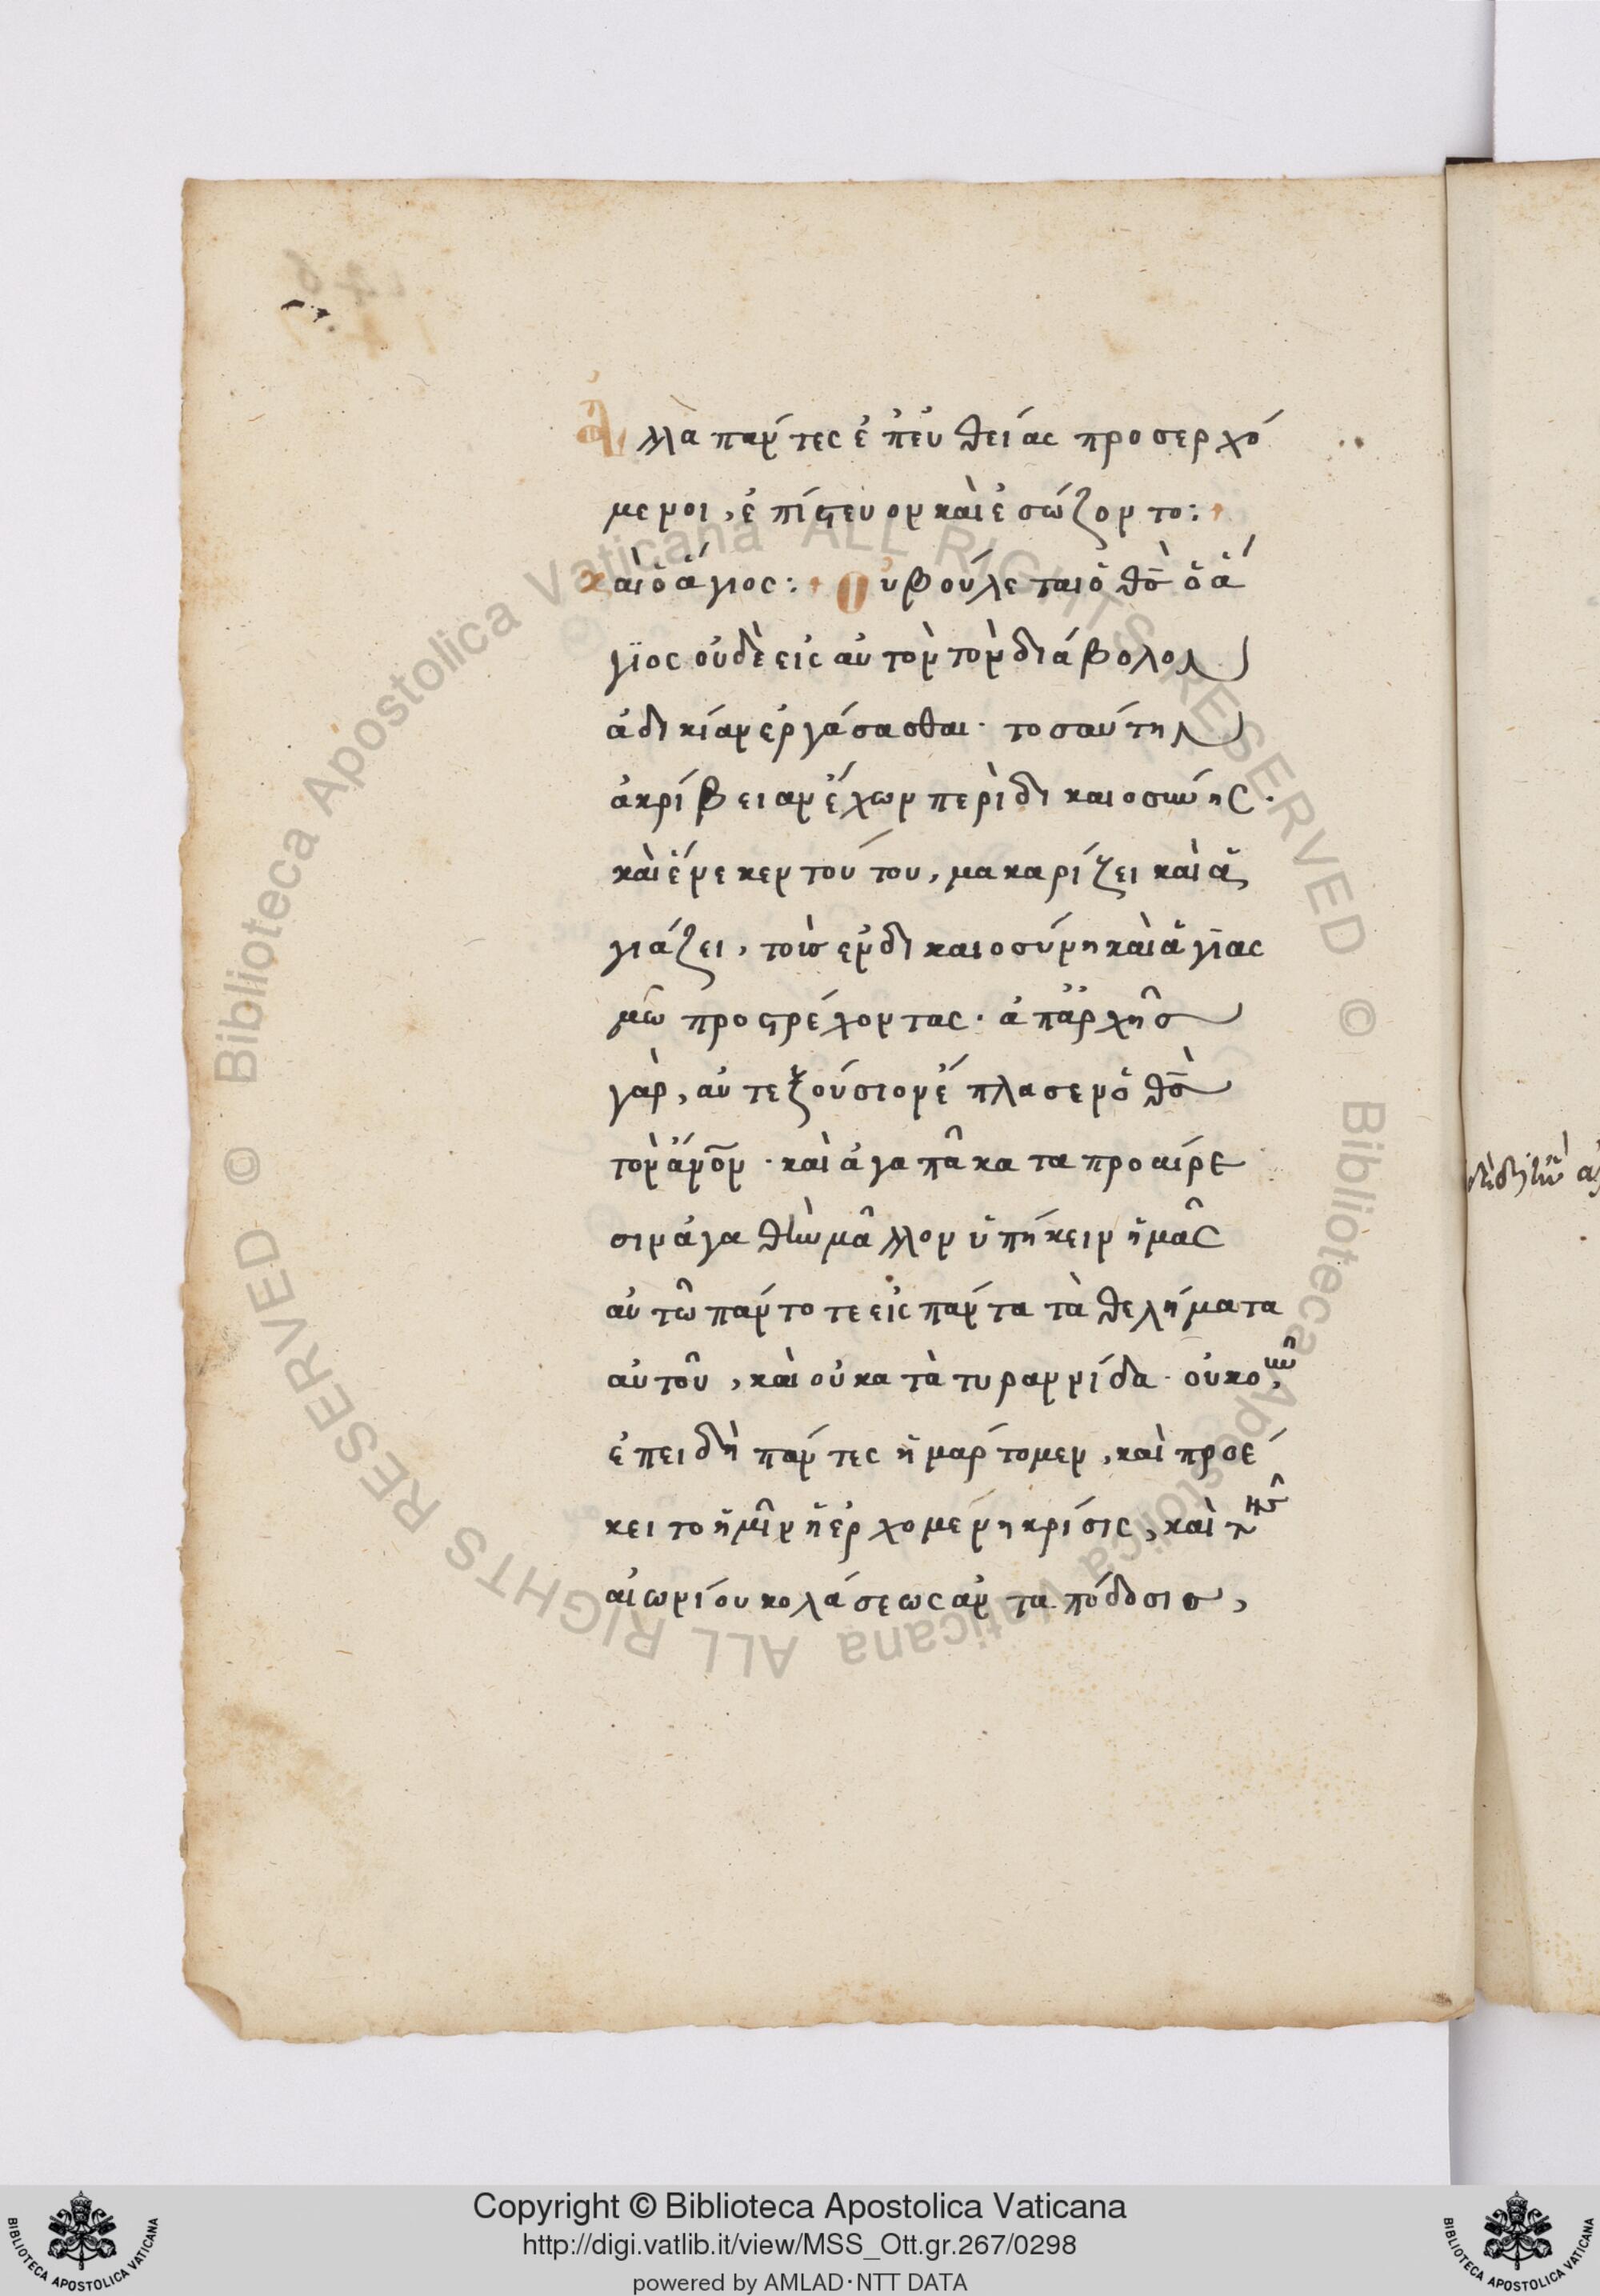 ἀλλα πάντες ἐπ' ευθείας προσερχό
μενοι, ἐπίστευον καὶ ἐσώζοντο:
καὶ ὁ ἅγιος: Οὐ βούλεται ὁ θς̅ ὁ ἅ
γϊος οὐδὲ εἰς αὐτὸν τὸν διάβολον
ἀδικίαν ἐργάσασθαι· τοσαύτην
ἀκρίβειαν ἔχων περὶ δικαιοσύνης·
καὶ ἕνεκεν τούτου, μακαρίζει καὶ ἁ
γιάζει, τοὺς ἐν δικαιοσύνη καὶ ἁγϊας
μῶ προστρέχοντας· ἀπ' ἀρχῆς
γὰρ, αὐτεξούσιον ἔπλασεν ὁ θς̅
τὸν ἄν̅ον̅· καὶ ἀγαπᾶ κατα προαίρε
σιν ἀγαθὴν μᾶλλον ὑπήκειν ἡμᾶς
αὐτῶ πάντοτε εἰς πάντα τὰ θελήματα
αὐτοῦ, καὶ οὐ κατὰ τυραννίδα· οὐκο
ἐπειδὴ πάντες ἡμάρτομεν, καὶ προέ
κειτο ἡμῖν ἡ ἐρχομένη κρίσις, καὶ τῆς
αἰωνίου κολάσεως ἀνταπόδοσις,
Copyright © Biblioteca Apostolica Vaticana
http://digi.vatlib.it/view/MSS_Ott.gr.267/0298
powered by AMLAD·NTT DATA
© Biblioteca Apostolica Vaticana ALL RIGHTS RESERVED
© Biblioteca Apostolica Vaticana ALL RIGHTS RESERVED
BIBLIOTECA APOSTOLICA VATICANA
BIBLIOTECA APOSTOLICA VATICANA